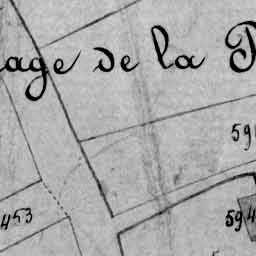 age de la P
59
453
594